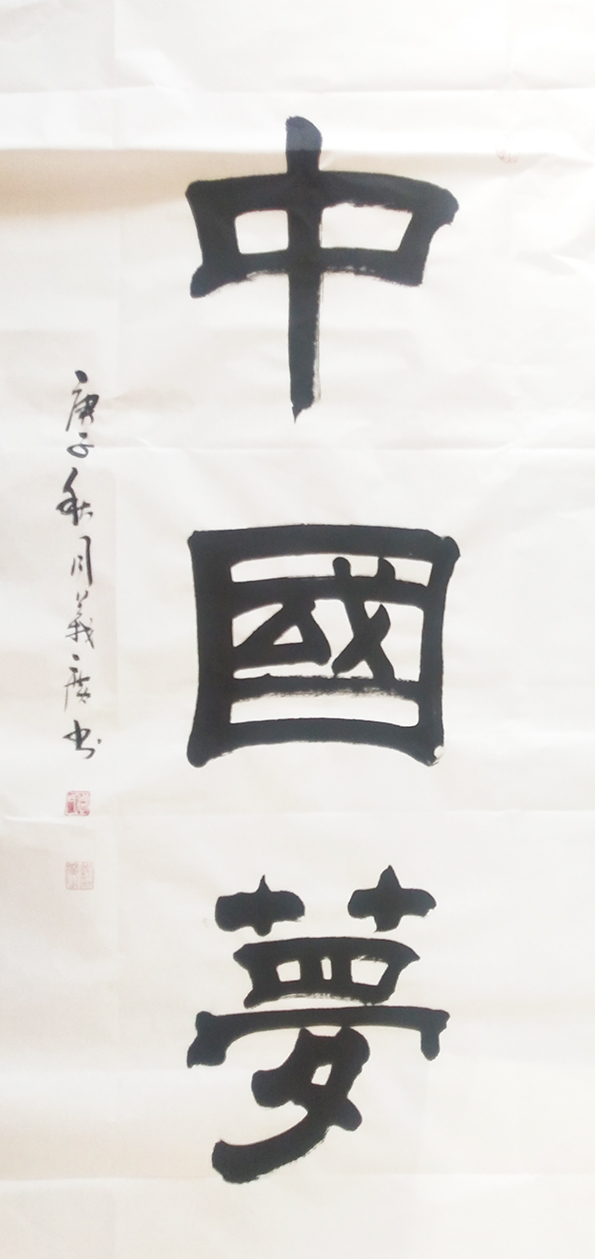 中國夢
庚子秋月義广书